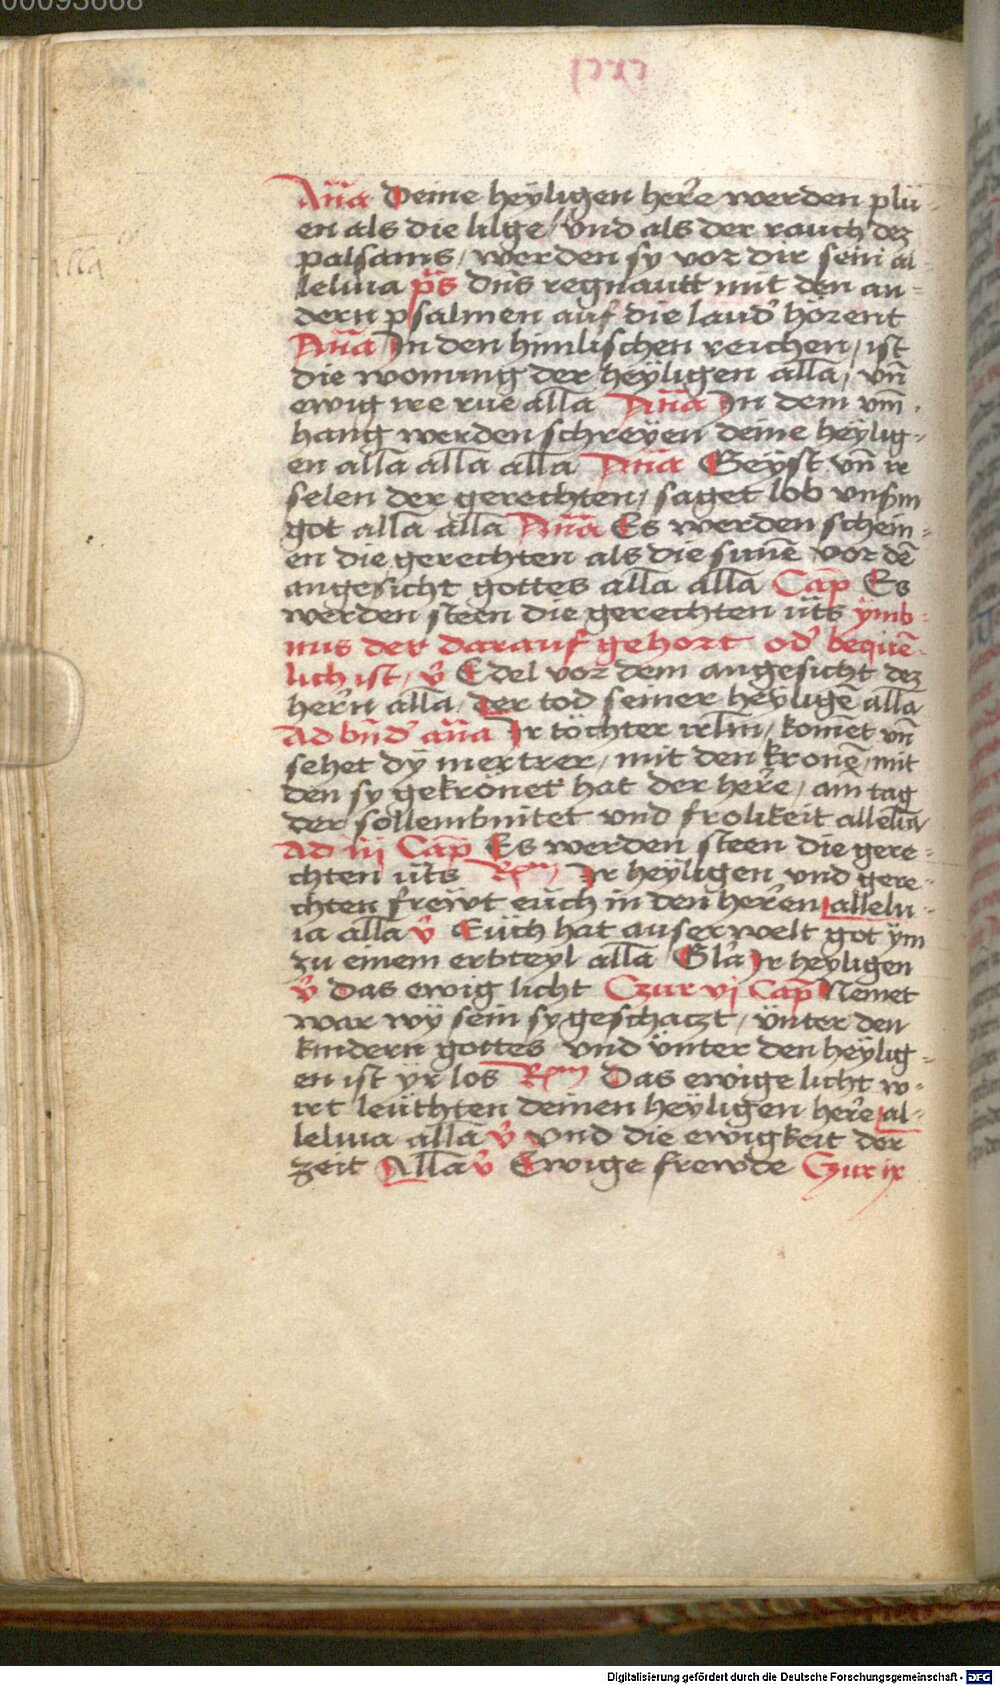 00093668
Añã Deine heÿligen her̃e werden plü-
en als die lilge / vnd als der rauch dez
palsams / werden sy vor dir sein al-
leluia ps̃ Dñs regnauit mit den an-
dern psalmen auf die laud̾ hörent
Añã In den himlischen reichen / ist
die wonung der heÿligen all̃a / vñ
ewig ire rue all̃a Añã In dem vm-
hang werden schreÿen deine heÿlig-
en all̃a all̃a all̃a Añã Geÿst vñ ir
selen der gerechten / saget lob vnserm
got all̃a all̃a Añã Es werden schein-
en die gerechten als die sunē vor dē
angesicht gottes all̃a all̃a Cap̃ Es
werden steen die gerechten üts ÿmb-
nus der darauf gehort od̾ bequē-
lich ist / v̾ Edel vor dem angesicht dez
her̃n all̃a / der tod seiner heÿligē all̃a
Ad bñd̾ añã Ir töchter irlm̃ / komet vñ
sehet dÿ mertrer / mit den kronē / mit
den sy gekrönet hat der her̃e / am tag
der sollembnitet vnd frolikeit alleluia
Ad iij Cap̃ Es werden steen die gere-
chten üts R̃m Ir heÿligen vnd gere-
chten frewt euch in den her̃en allelu-
ia all̃a v̾ Eüch hat auserwelt got ÿm
zu einem erbteyl all̃a Gl̃a Ir heyligen
v̾ Das ewig licht Czur vj Cap̃ Nemet
war wÿ sein sy geschaczt / ünter den
kindern gottes vnd ünter den heÿlig-
en ist ÿr los R̃m Das ewige licht w-
irt leüchten deinen heÿligen her̃e al-
leluia all̃a v̾ Vnd die ewigkeit der
zeit All̃a v̾ Ewige frewde Czur ix
alla
Digitalisierung gefördert durch die Deutsche Forschungsgemeinschaft - DFG